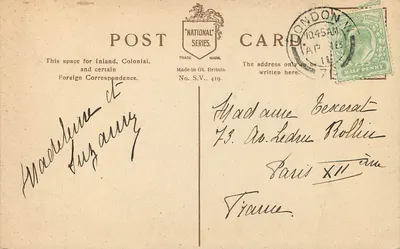 POST CARD
"NATIONAL" SERIES.
TRADE MARK
Made in Gt. Britain.
No. S.V., 419.
This space for Inland, Colonial,
and certain
Foreign Correspondence.
The address only to be
written here.
LONDON W.
10.45AM
AP
11
HALF PENNY
Madeleine et
Suzanne
Madame Texerat
73. Av. Ledru Rollin
Paris XII ème
France.